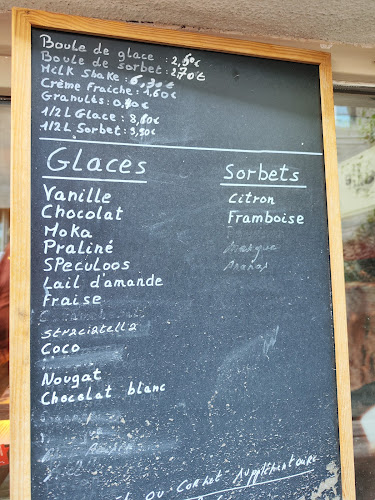 Boule de glace : 2,60€
Boule de sorbet : 2,70€
Milk Shake : 6,30€
Crème Fraîche : 1,60€
Granulés : 0,80€
1/2 L Glace : 8,80€
1/2 L Sorbet : 9,90€
Glaces
Sorbets
Vanille
Chocolat
Moka
Praliné
SPeculoos
Lait d'amande
Fraise
Straciatella
Coco
Nougat
Chocolat blanc
Citron
Framboise
Mangue
Ananas
ou Cornet supplémentaire